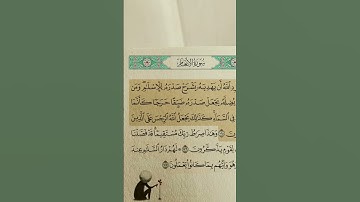 سُورَةُ الأَنْعَامِ
رِدِ ٱللَّهُ أَن يَهْدِيَهُۥ يَشْرَحْ صَدْرَهُۥ لِلْإِسْلَٰمِ وَمَن
ضِلَّهُۥ يَجْعَلْ صَدْرَهُۥ ضَيِّقًا حَرَجًا كَأَنَّمَا
فِي ٱلسَّمَآءِ كَذَٰلِكَ يَجْعَلُ ٱللَّهُ ٱلرِّجْسَ عَلَى ٱلَّذِينَ
ونَ ۝ وَهَٰذَا صِرَٰطُ رَبِّكَ مُسْتَقِيمًا قَدْ فَصَّلْنَا
لِقَوْمٍ يَذَّكَّرُونَ ۝ لَهُمْ دَارُ ٱلسَّلَٰمِ عِندَ
وَهُوَ وَلِيُّهُم بِمَا كَانُوا۟ يَعْمَلُونَ ۝